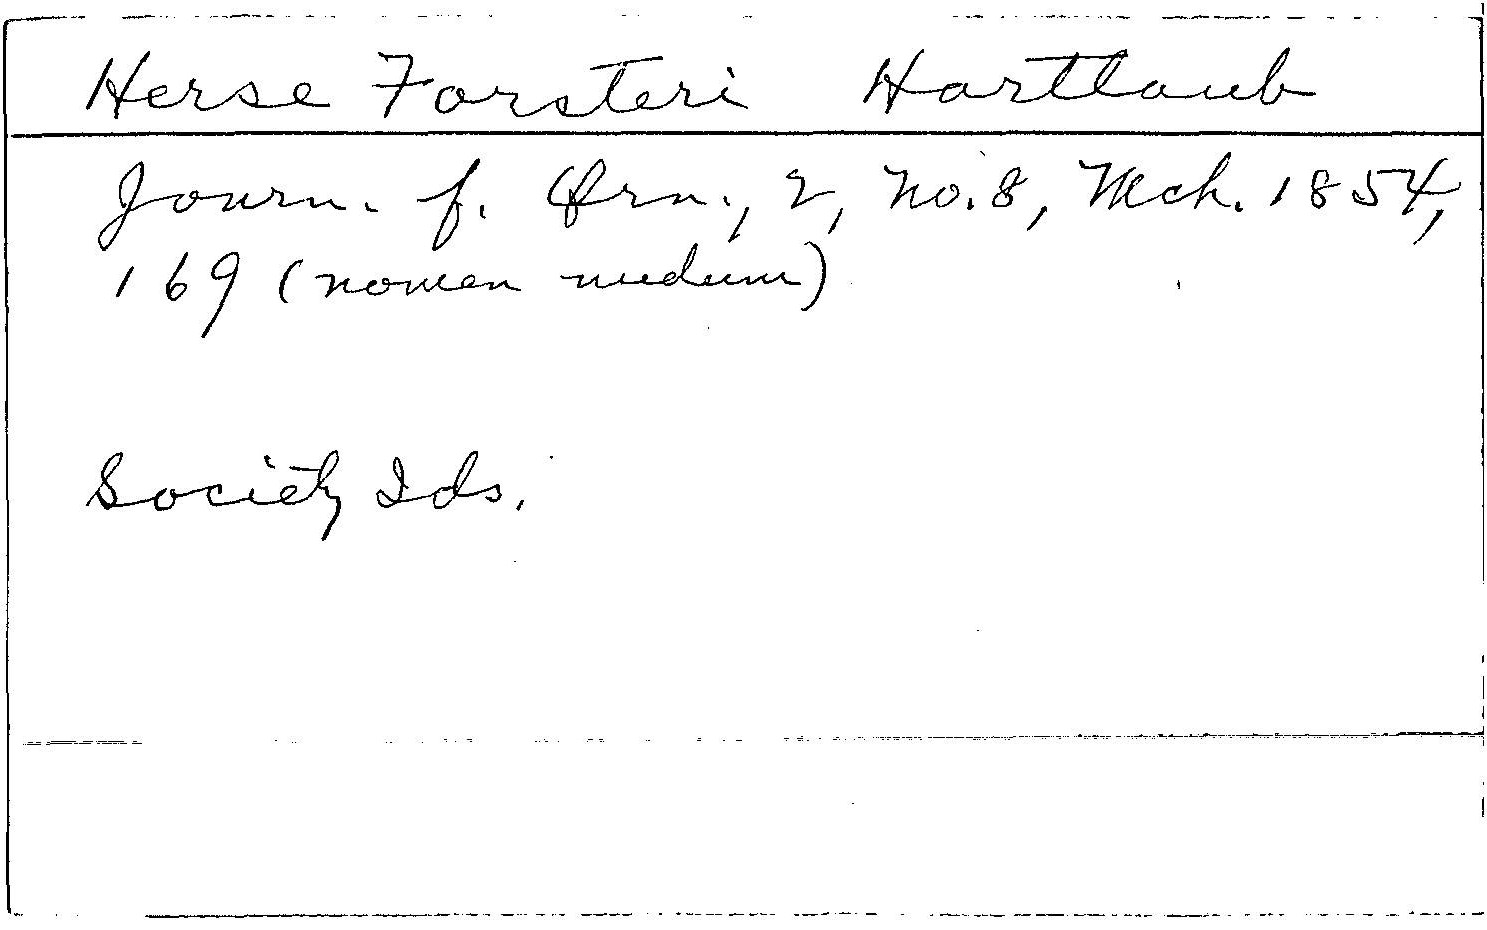 Herse Forsteri Hartlaub
Journ. f. Orn., 2, No. 8, Mch. 1854,
169 (nomen nudum)
Society Ids.